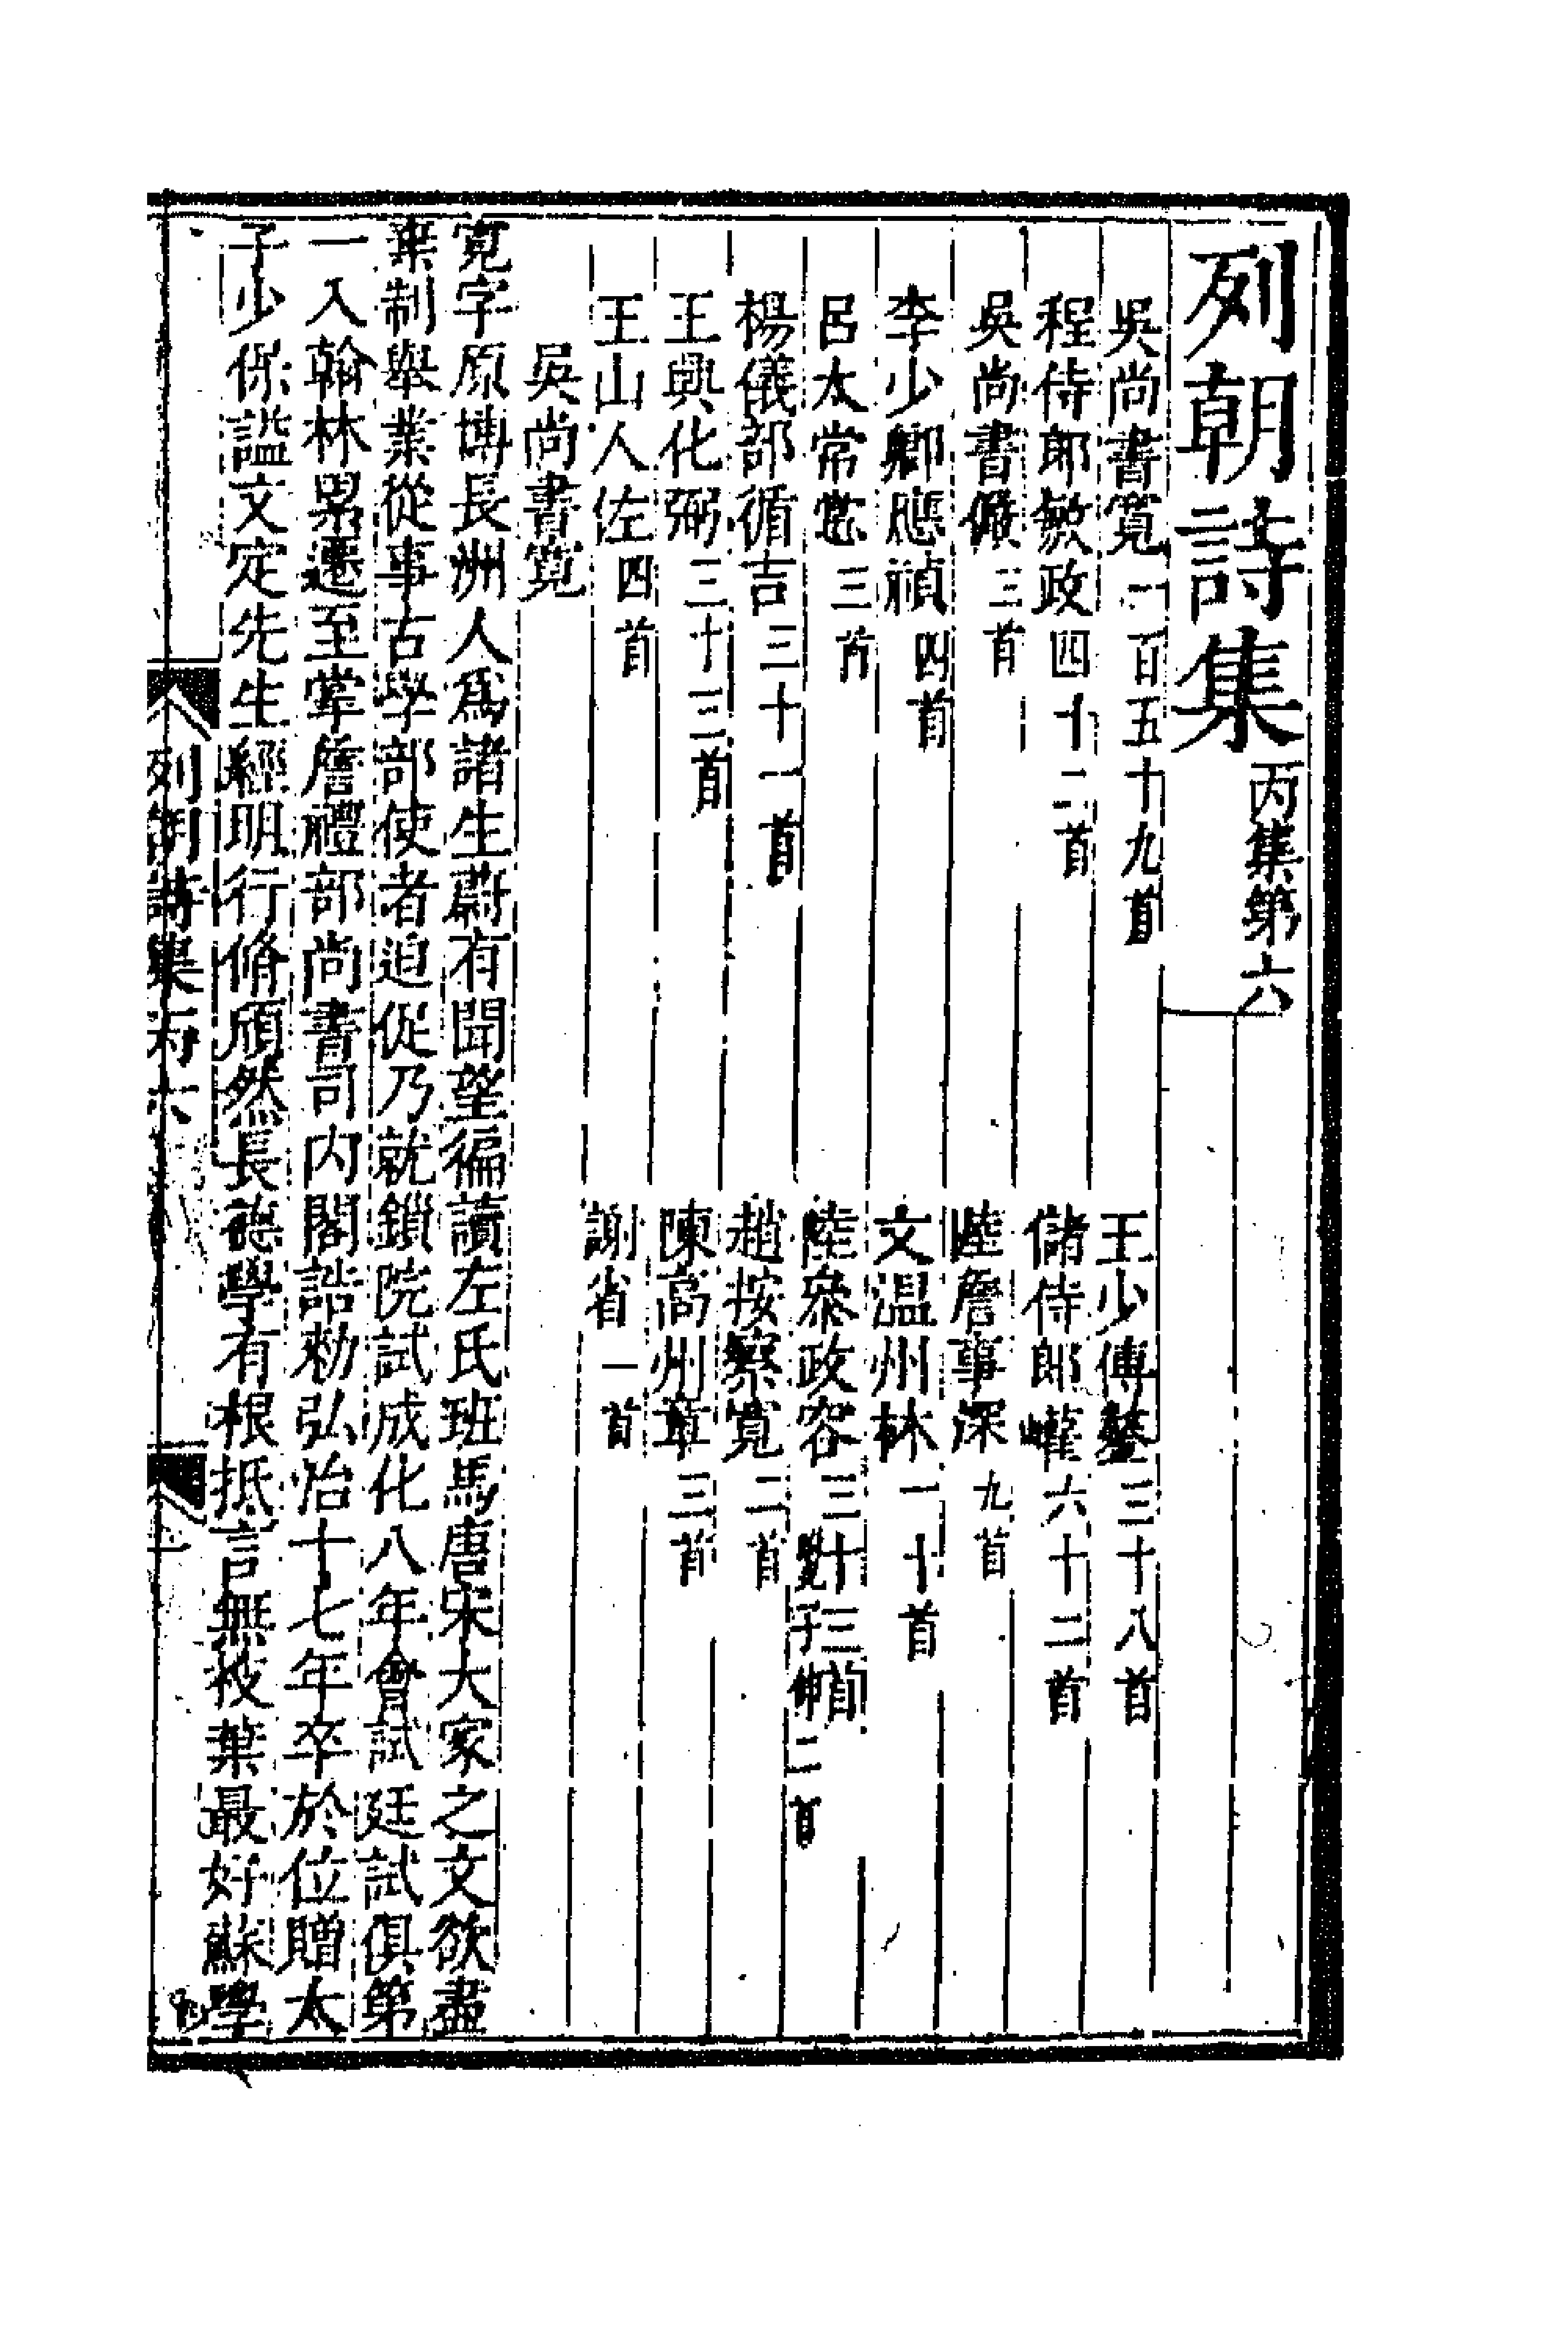 列朝詩集丙集第六
吳尚書寬一百五十九首　王少傅鏊三十八首
程侍郎敏政四十二首　儲侍郎巏六十二首
吳尚書儼三首　陸詹事深九首
李少卿應禎四首　文温州林一十首
呂太常㦂三首　陸叅政容三十三首
附見子伸二首
楊儀部循吉三十一首　趙按察寬二首
王興化弼三十三首　陳高州章三首
王山人佐四首　謝省一首
吳尚書寬
寬字原博長洲人爲諸生蔚有聞望徧讀左氏班馬唐宋大家之文欲盡
棄制舉業從事古學部使者迫促乃就鎖院試成化八年會試廷試俱第
一入翰林累遷至掌詹禮部尚書司内閣誥勅弘治十七年卒於位贈太
子少保諡文定先生經明行脩頎然長德學有根抵言無枝葉最好蘇學
列朝詩集丙六